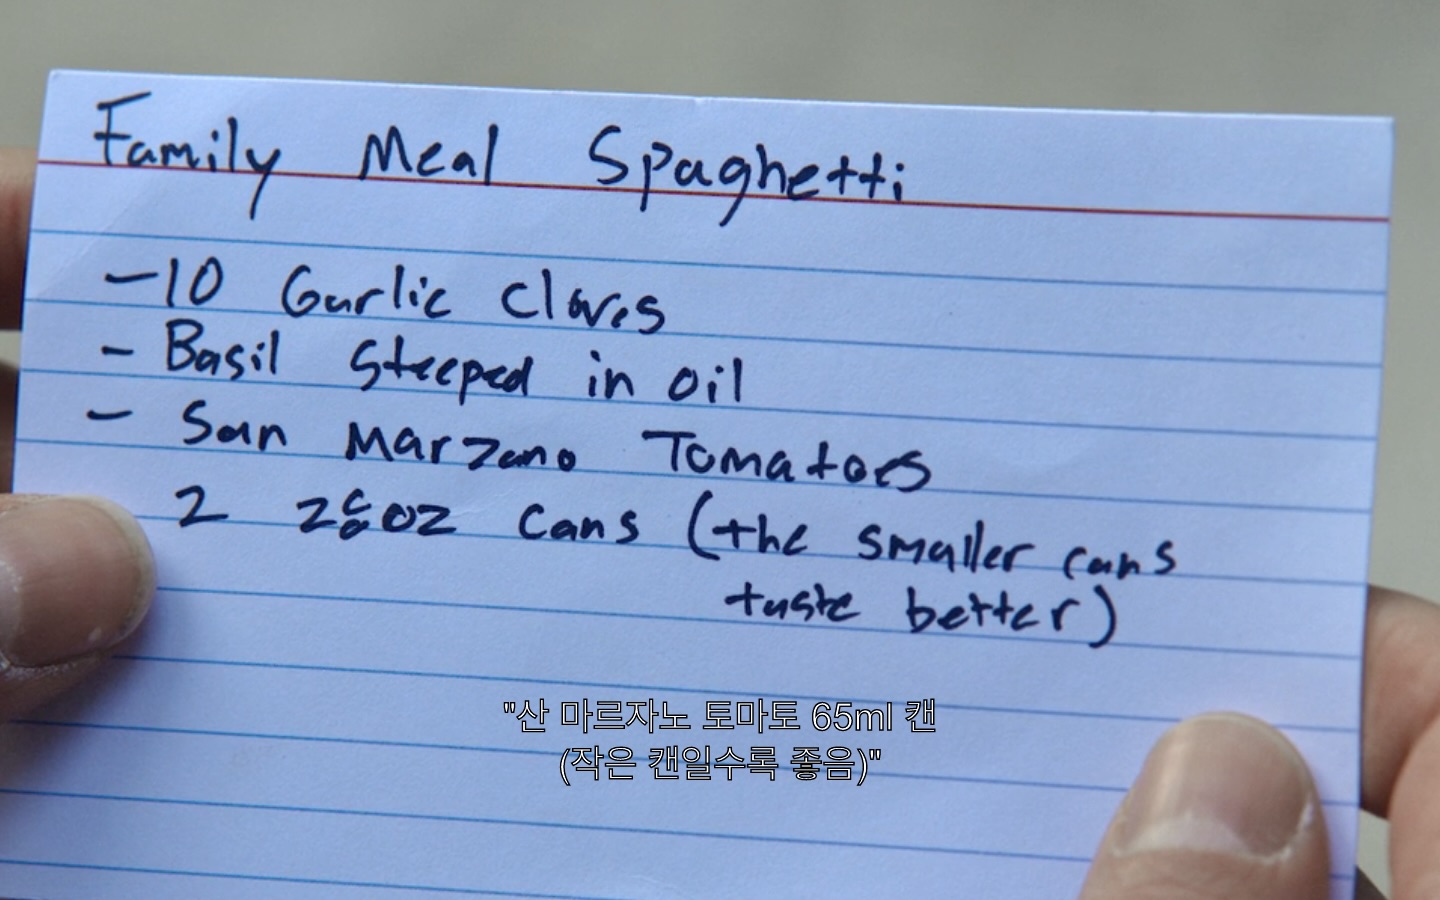 Family Meal Spaghetti
-10 Garlic Cloves
- Basil Steeped in oil
- San Marzano Tomatoes
2 28oz cans (the smaller cans
taste better)
"산 마르자노 토마토 65ml 캔
(작은 캔일수록 좋음)"